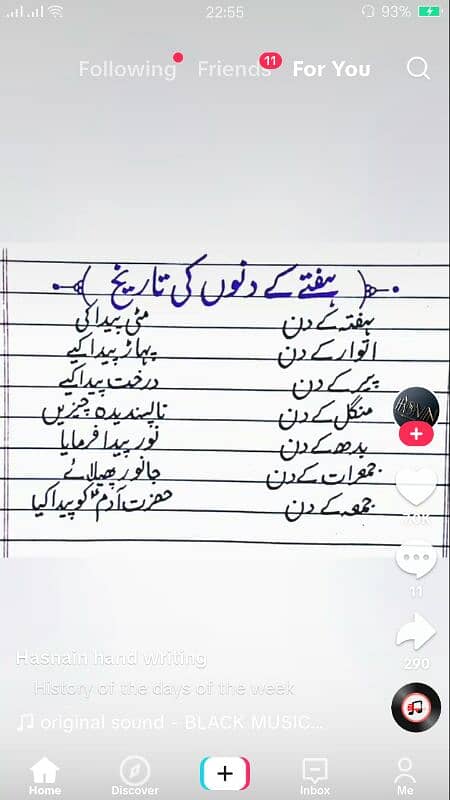 22:55
93%
Following
Friends 11
For You
ہفتے کے دنوں کی تاریخ
ہفتہ کے دن مٹی پیدا کی
اتوار کے دن پہاڑ پیدا کیے
پیر کے دن درخت پیدا کیے
منگل کے دن ناپسندیدہ چیزیں
بدھ کے دن نور پیدا فرمایا
جمعرات کے دن جانور پھیلائے
جمعہ کے دن حضرت آدمؑ کو پیدا کیا
11
290
Hasnain hand writing
History of the days of the week
original sound - BLACK MUSIC...
Home
Discover
Inbox
Me